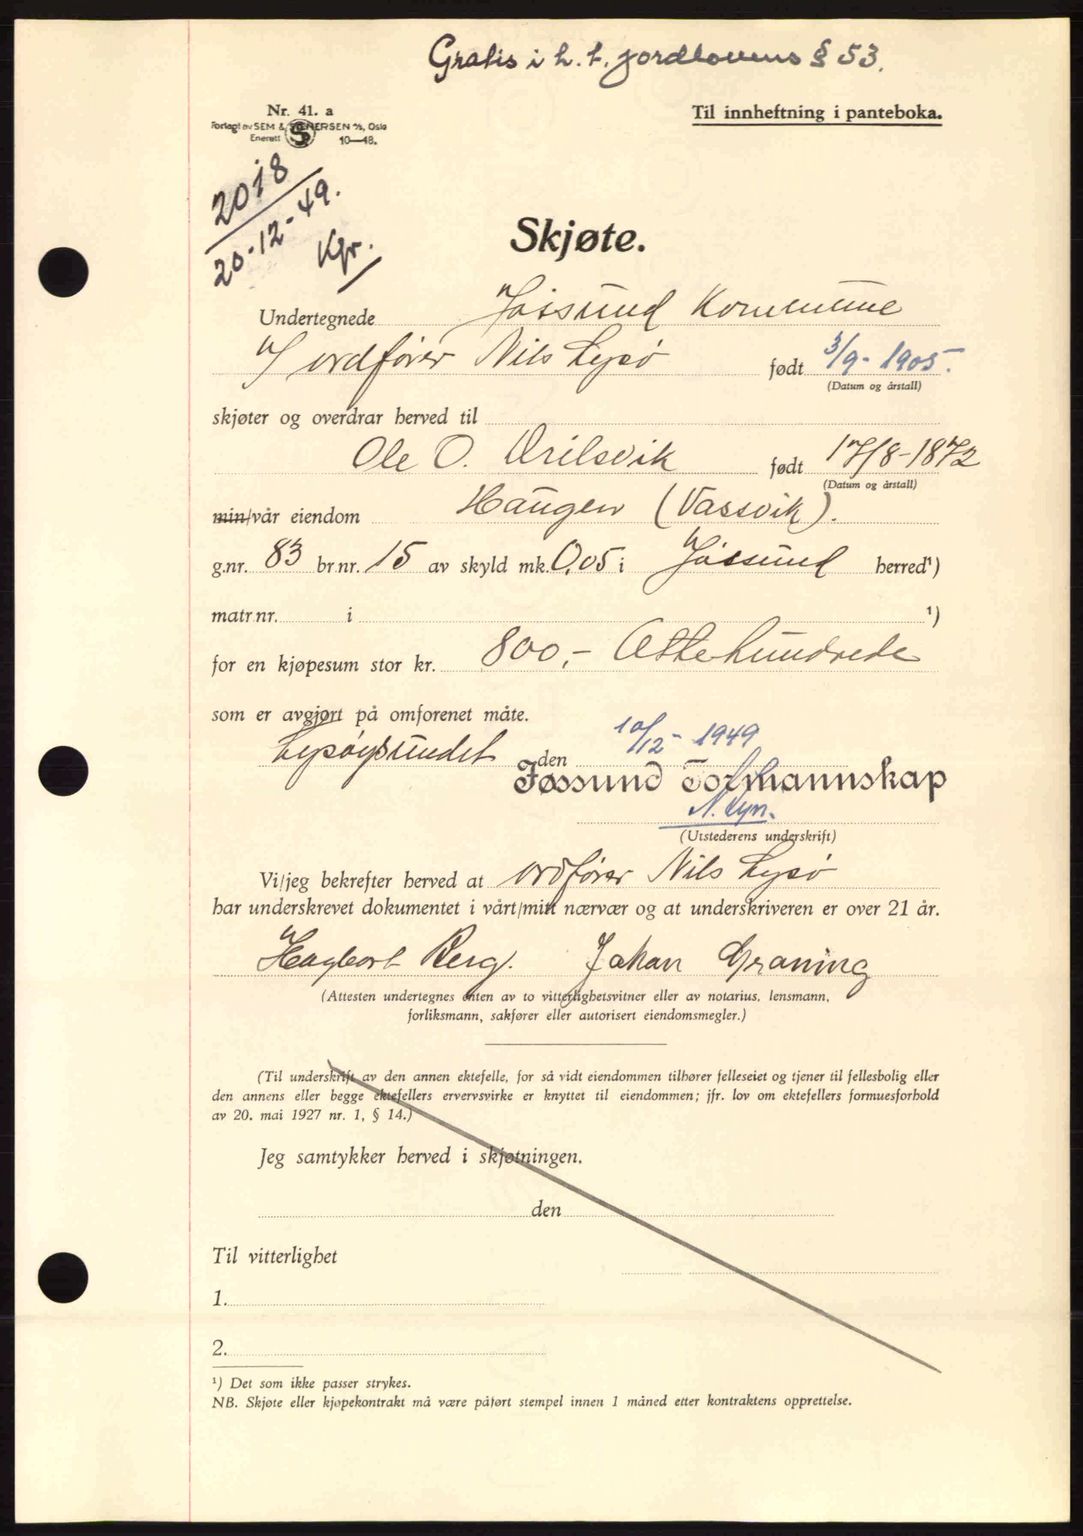 Gratis i h. t. jordlovens § 53.
Nr. 41. a
Til innheftning i panteboka.
Forlagt av SEM & STENERSEN A/S, Oslo
Enerett 10—48.
2018
20-12-49.
Kgr.
Skjøte.
Undertegnede Jøssund Kommune
v/ ordfører Nils Lysø født 3/9- 1905.
(Datum og årstall)
skjøter og overdrar herved til
Ole O. født 17/8-1872
(Datum og årstall)
min/vår eiendom Haugen (Vassvik).
g.nr. 83 br.nr. 15 av skyld mk. 0,05 i Jøssund herred¹)
matr.nr. i ¹)
for en kjøpesum stor kr. 800,- Åttehundrede
som er avgjort på omforenet måte.
Lysøysundet den 10/12- 1949
Jøssund Formannskap
N. Lysø
(Utstederens underskrift)
Vi/jeg bekrefter herved at ordfører Nils Lysø
har underskrevet dokumentet i vårt/mitt nærvær og at underskriveren er over 21 år.
Hagbart Berg. Johan Graning
(Attesten undertegnes enten av to vitterlighetsvitner eller av notarius, lensmann,
forliksmann, sakfører eller autorisert eiendomsmegler.)
(Til underskrift av den annen ektefelle, for så vidt eiendommen tilhører felleseiet og tjener til fellesbolig eller
den annens eller begge ektefellers ervervsvirke er knyttet til eiendommen; jfr. lov om ektefellers formuesforhold
av 20. mai 1927 nr. 1, § 14.)
Jeg samtykker herved i skjøtningen.
den
Til vitterlighet
1.
2.
¹) Det som ikke passer strykes.
NB. Skjøte eller kjøpekontrakt må være påført stempel innen 1 måned etter kontraktens opprettelse.